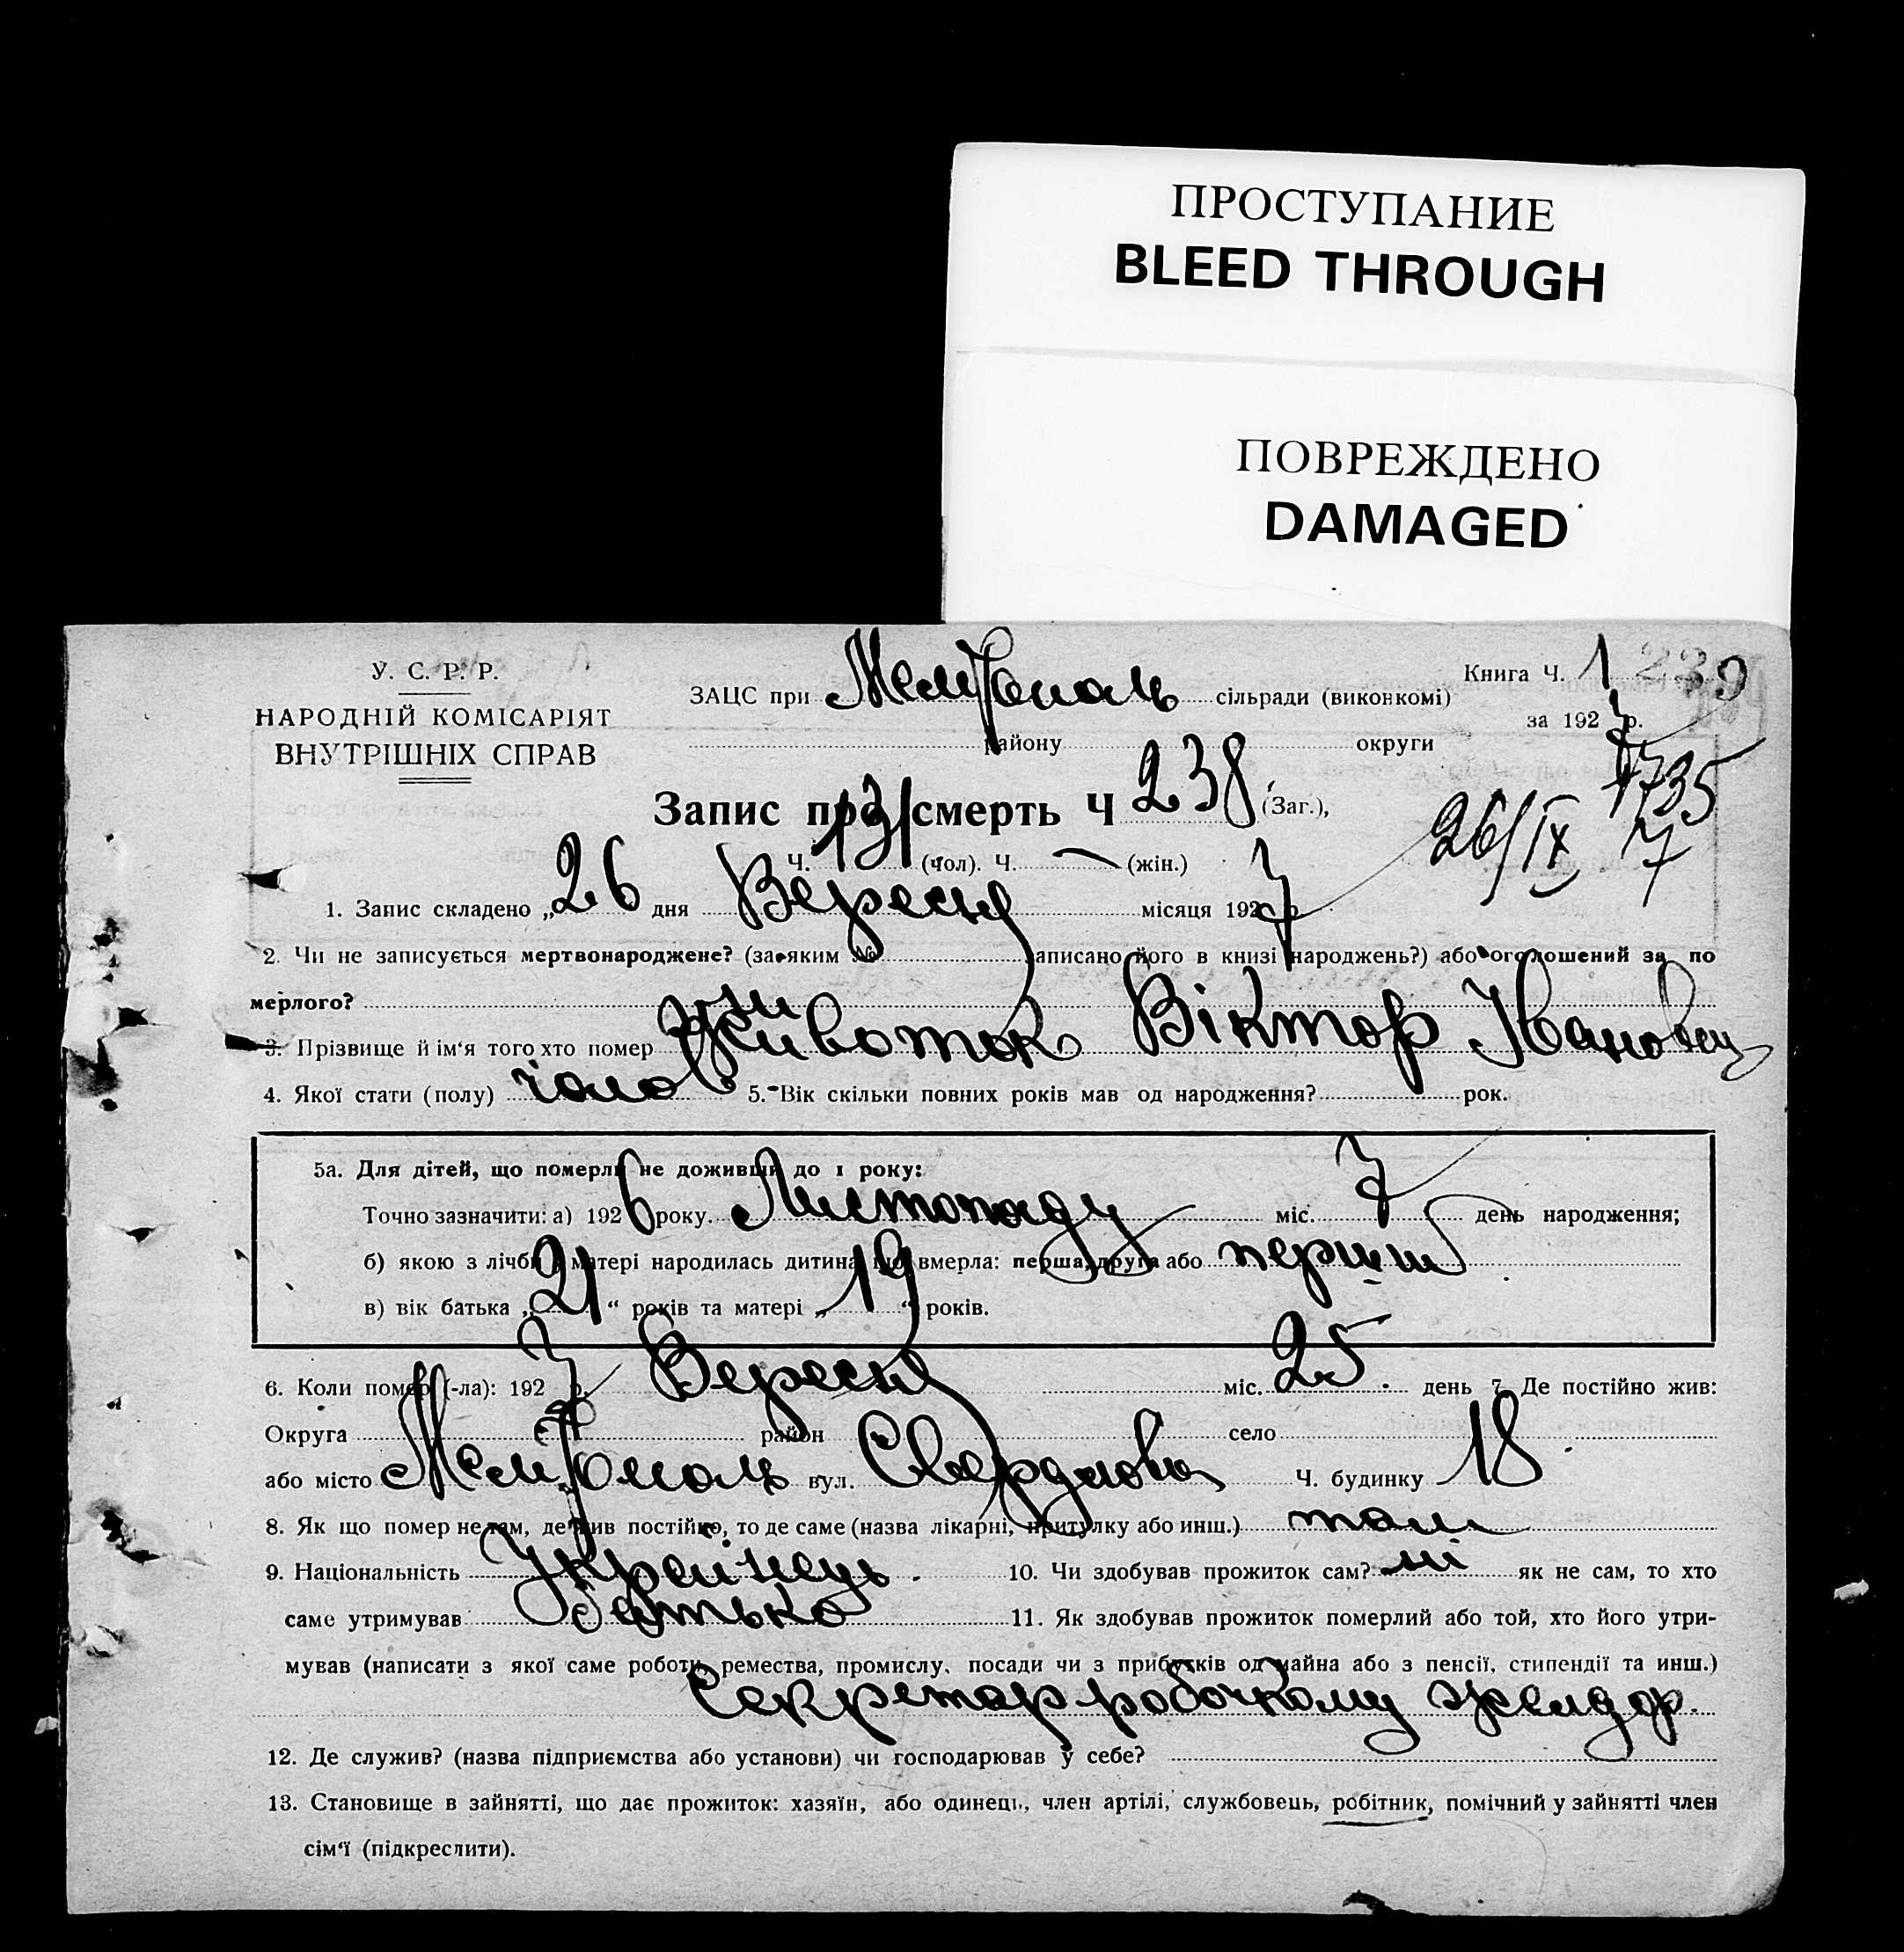 ПРОСТУПАНИЕ
BLEED THROUGH
ПОВРЕЖДЕНО
DAMAGED
У. С. Р. Р.
НАРОДНІЙ КОМІСАРІЯТ
ВНУТРІШНІХ СПРАВ
Книга Ч. 1 239
за 1927 р.
ЗАЦС при Мелітополь сільради (виконкомі)
району округи
1735
26/IX 7
Запис про смерть Ч 238 (Заг.),
Ч. 131 (чол). Ч. — (жін.)
1. Запис складено „26 дня Вересня місяця 1927 р.
2. Чи не записується мертвонароджене? (за яким № записано його в книзі народжень?) або оголошений за по
мерлого? ни
3. Прізвище й ім'я того хто помер Животок Віктор Іванович
4. Якої стати (полу) чоло 5. Вік скільки повних років мав од народження? рок.
5а. Для дітей, що померли не доживши до 1 року:
Точно зазначити: а) 1926 року. Листопаду міс. 7 день народження;
б) якою з лічби у матері народилась дитина, що вмерла: перша, друга або перший
в) вік батька „21“ років та матері „19“ років.
6. Коли помер (-ла): 1927 р. Вересня міс. 25 день 7. Де постійно жив:
Округа район село
або місто Мелітополь вул. Свердлова Ч. будинку 18
8. Як що помер не там, де жив постійно, то де саме (назва лікарні, притулку або инш.) там
9. Національність Українець. 10. Чи здобував прожиток сам? ні як не сам, то хто
саме утримував Батько 11. Як здобував прожиток померлий або той, хто його утри-
мував (написати з якої саме роботи, ремества, промислу, посади чи з прибутків од майна або з пенсії, стипендії та инш.)
Секретар робочкому желдор.
12. Де служив? (назва підприємства або установи) чи господарював у себе?
13. Становище в зайнятті, що дає прожиток: хазяїн, або одинець, член артілі, службовець, робітник, помічний у зайнятті член
сім'ї (підкреслити).